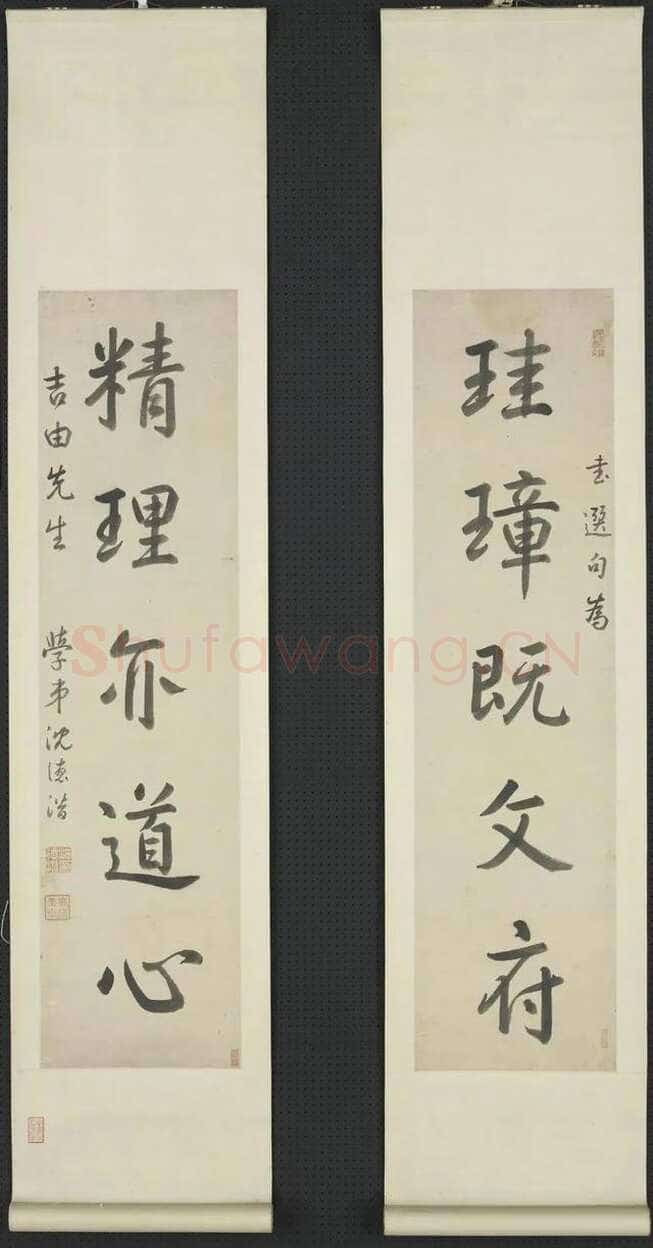 书選句為
珪璋既文府
精理亦道心
吉由先生 學弟沈德潛
Shufawang.CN